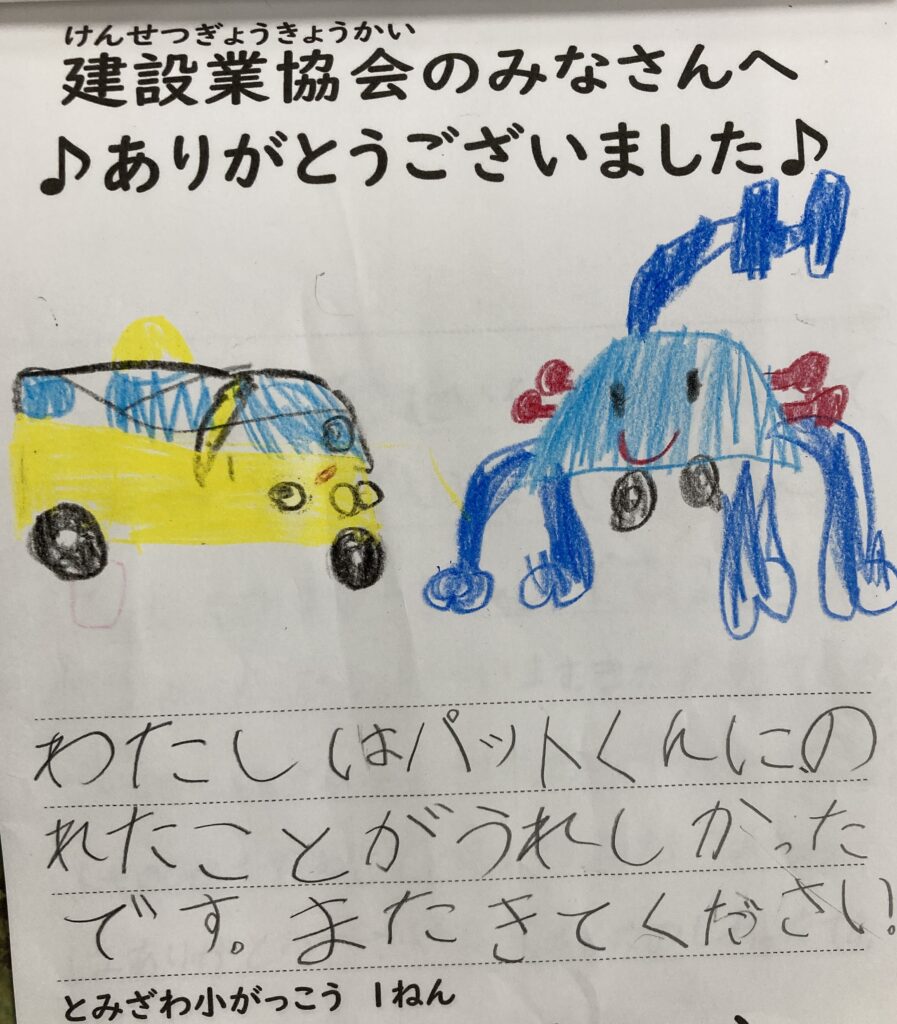 けんせつぎょうきょうかい
建設業協会のみなさんへ
♪ありがとうございました♪
わたしはパットくんにの
れたことがうれしかった
です。またきてください!
とみざわ小がっこう 1ねん